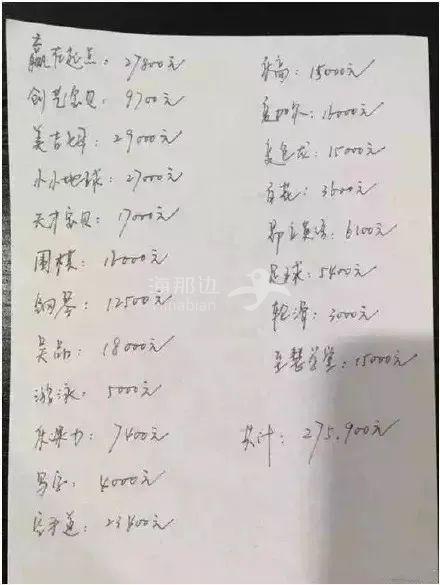 赢在起点：27800元
创艺宝贝：9700元
美吉姆：29000元
小小地球：27000元
天才宝贝：17000元
围棋：16000元
钢琴：12500元
：18000元
游泳：5000元
：7400元
写字：4000元
：23400元
乐高：15000元
：16000元
变色龙：15000元
：3600元
昂立英语：6100元
足球：5400元
轮滑：3000元
至慧学堂：15000元
共计：275.900元
海那边
hinabian